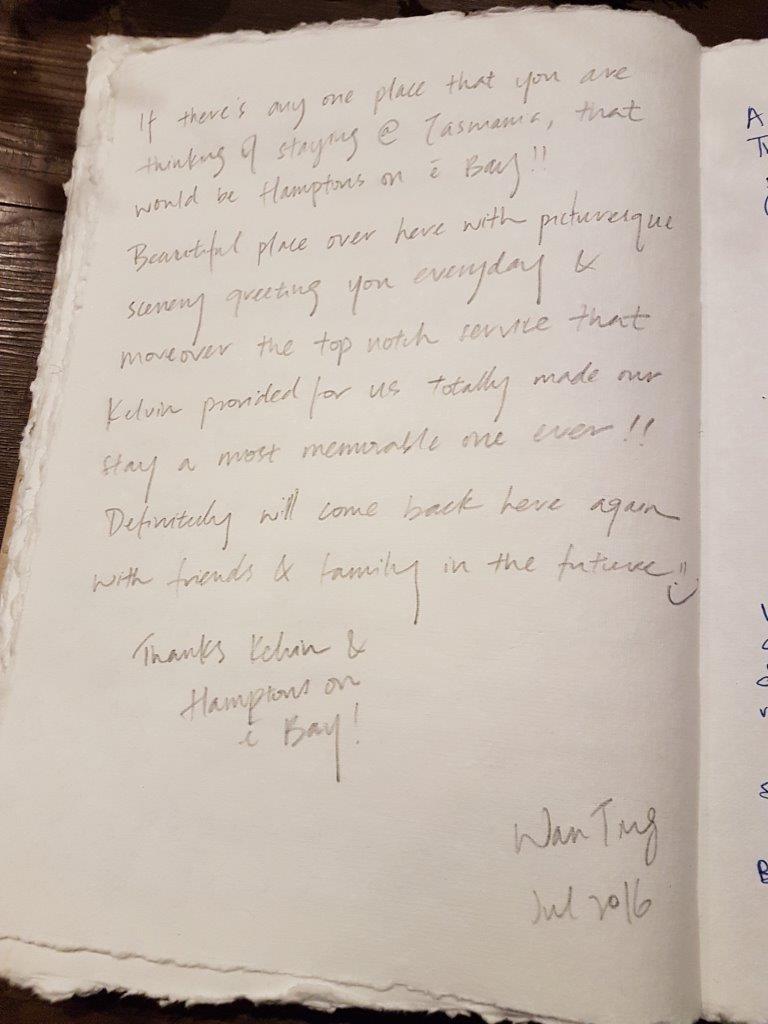 If there's any one place that you are
thinking of staying @ Tasmania, that
would be Hamptons on ē Bay!!
Beautiful place over here with picturesque
scenery greeting you everyday &
moreover the top notch service that
Kelvin provided for us totally made our
stay a most memorable one ever!!
Definitely will come back here again
with friends & family in the future
Thanks Kelvin &
Hamptons on
ē Bay!
Wan Ting
Jul 2016